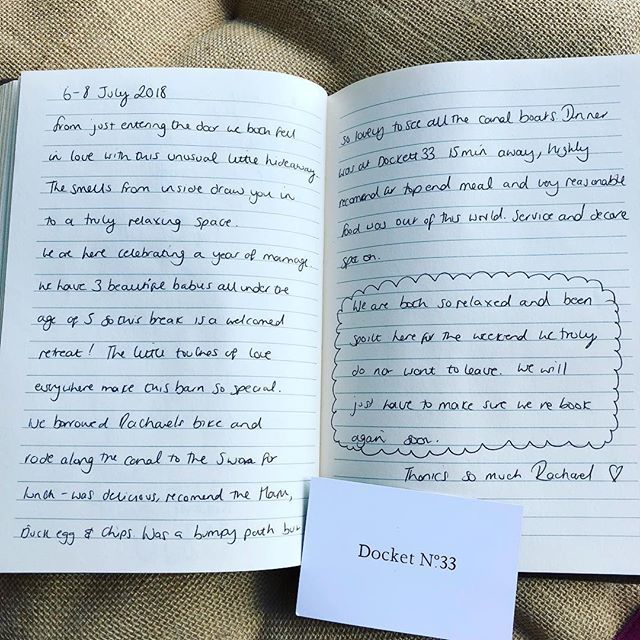 6-8 July 2018
from just entering the door we both fell
in love with this unusual little hideaway.
The smells from inside draw you in
to a truly relaxing space.
We are here celebrating a year of marriage.
We have 3 beautiful babies all under the
age of 5 so this break is a welcomed
retreat! The little touches of love
everywhere make this barn so special.
We borrowed Rachaels bike and
rode along the canal to the Swan for
lunch - was delicious, recomend the Ham,
Duck egg & Chips. Was a bumpy path but
so lovely to see all the canal boats. Dinner
was at Dockett 33 15min away, highly
recomend a top end meal and very reasonable
food was out of this world. Service and decore
spot on.
We are both so relaxed and been
spoilt here for the weekend we truly
do not want to leave. We will
just have to make sure we re book
again soon.
Thanks so much Rachael ♡
Docket Nº33